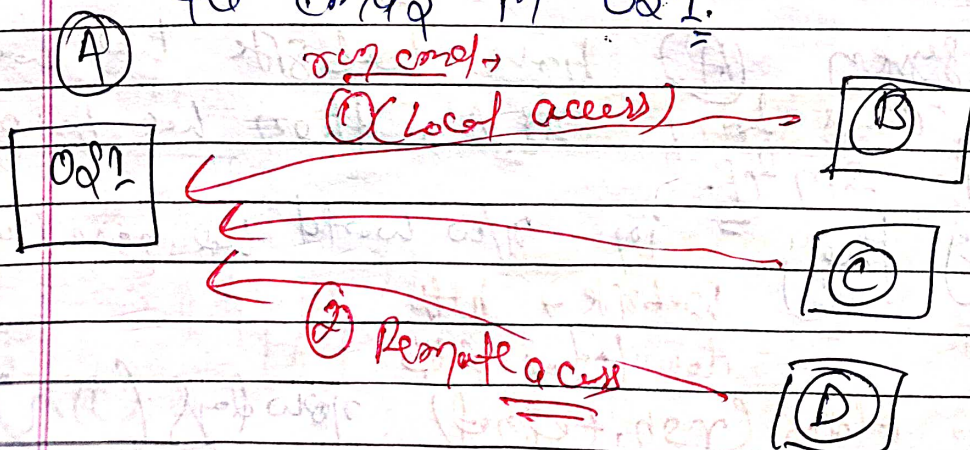 in OS 1.
A
run cmd →
① (Local access)
B
OS 1
C
② Remote acess
D